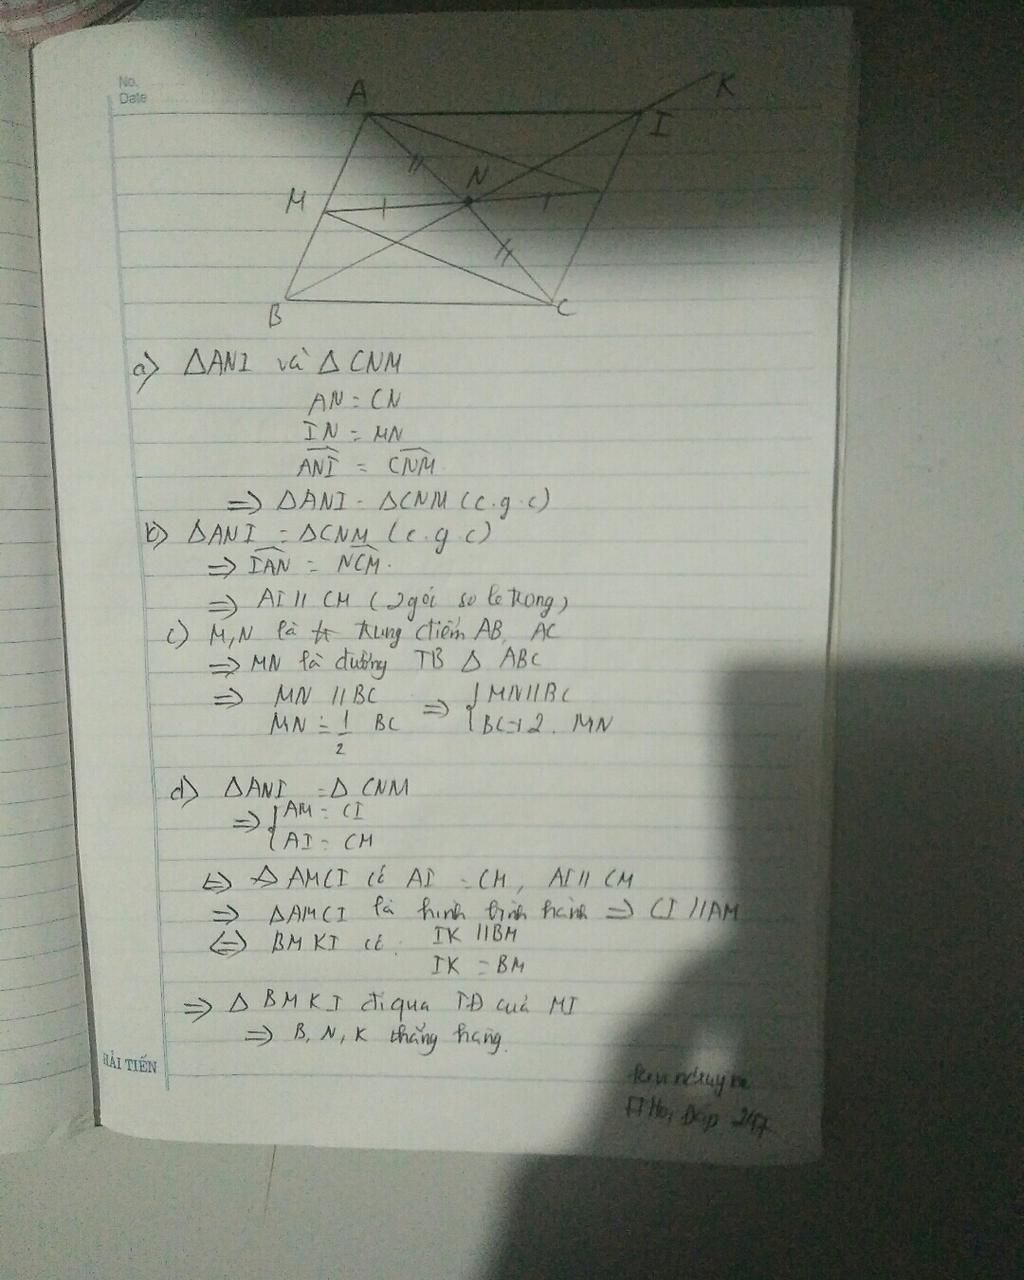 No.
Date
A
K
I
N
M
B
C
a) ΔANI và Δ CNM
AN = CN
IN = MN
ANI = CNM
=> ΔANI = ΔCNM (c.g.c)
b) ΔANI = ΔCNM (c.g.c)
=> IAN = NCM.
=> AI // CM (2 gói so le trong)
c) M, N là trung điểm AB, AC
=> MN là đường TB Δ ABC
=> MN // BC => { MN // BC
MN = 1/2 BC BC = 2. MN
d) Δ ANI = Δ CNM
=> { AM = CI
AI = CM
<=> Δ AMCI có AI = CM, AI // CM
=> ΔAMCI là hình bình hành => CI // AM
<=> BMKI có IK // BM
IK = BM
=> Δ BMKI đi qua TĐ của MI
=> B, N, K thẳng hàng.
HẢI TIẾN
Hỏi Đáp 247